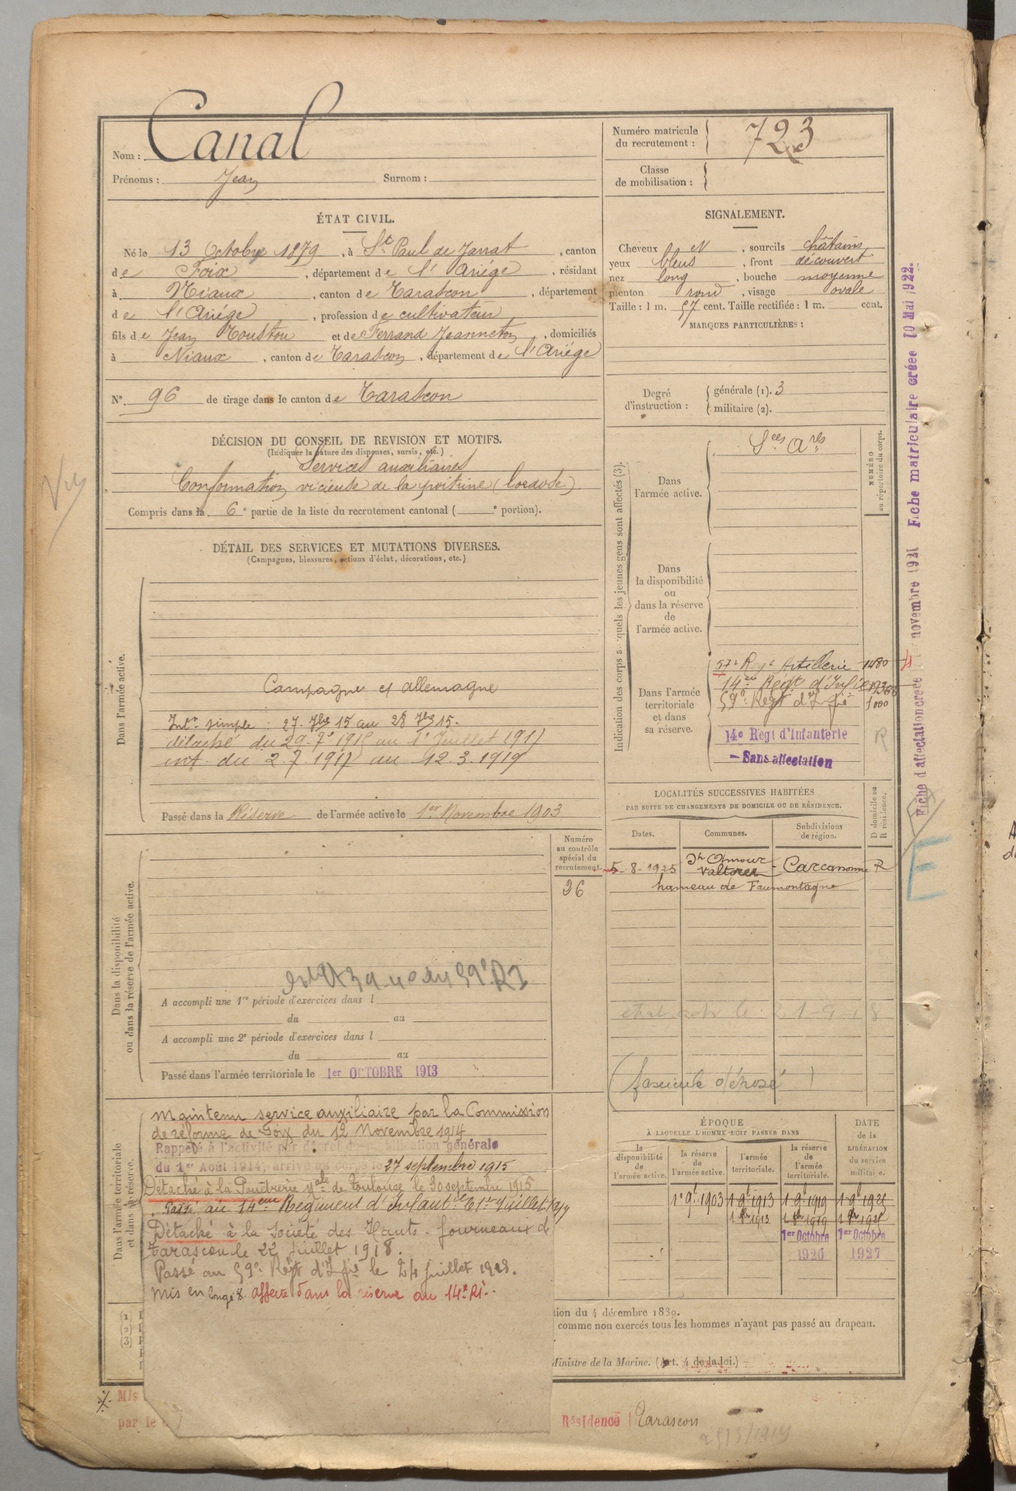 Nom : Canal
Prénoms : Jean Surnom :
Numéro matricule du recrutement : 723
Classe de mobilisation :
ÉTAT CIVIL.
Né le 13 Octobre 1879, à St Paul de Jarrat, canton
de Foix, département de l'Ariège, résidant
à Niaux, canton de Tarascon, département
de l'Ariége, profession de cultivateur
fils de Jean et de Ferrand Jeanneton, domiciliés
à Niaux, canton de Tarascon, département de l'Ariége
N° 96 de tirage dans le canton de Tarascon
DÉCISION DU CONSEIL DE REVISION ET MOTIFS.
(Indiquer la nature des dispenses, sursis, etc.)
Services auxiliaires
Conformation vicieuse de la poitrine (lordose)
Compris dans la 6e partie de la liste du recrutement cantonal ( e portion).
SIGNALEMENT.
Cheveux N, sourcils châtains
yeux bleus, front découvert
nez long, bouche moyenne
menton rond, visage ovale
Taille : 1 m. 57 cent. Taille rectifiée : 1 m. cent.
MARQUES PARTICULIÈRES :
Degré d'instruction : générale (1). 3
militaire (2).
DÉTAIL DES SERVICES ET MUTATIONS DIVERSES.
(Campagnes, blessures, actions d'éclat, décorations, etc.)
Dans l'armée active.
Campagne ct allemagne
Int. simple : 27. 7bre 15 au 28 7bre 15.
détaché du 29.7 1915 au 1er Juillet 1917
int du 2.7 1917 au 12.3.1919
Passé dans la Réserve de l'armée active le 1er Novembre 1903
Indication des corps auxquels les jeunes gens sont affectés (3).
Dans l'armée active.
Sces Arés
NUMÉRO au répertoire du corps.
Dans la disponibilité ou dans la réserve de l'armée active.
Dans l'armée territoriale et dans sa réserve.
57e Rgt Artillerie 1480
14me Regt d'Infie
59e Regt d'Ifie 1000
14e Regt d'Infanterie R
Sans affectation
LOCALITÉS SUCCESSIVES HABITÉES
PAR SUITE DE CHANGEMENTS DE DOMICILE OU DE RÉSIDENCE.
Dates. Communes. Subdivisions de région. D domicile ou R résidence.
5-8-1925 St Amour Carcanonne R
hameau de
(fascicule déposé)
Dans la disponibilité ou dans la réserve de l'armée active.
Numéro au contrôle spécial du recrutement.
36
A accompli une 1re période d'exercices dans l
du au
A accompli une 2e période d'exercices dans l
du au
Passé dans l'armée territoriale le 1er OCTOBRE 1913
Dans l'armée territoriale et dans sa réserve.
Maintenu service auxiliaire par la Commission
de réforme de Foix du 12 Novembre 1914
Rappelé à l'activité par décret de mobilisation générale
du 1er Août 1914, arrivé au corps le 27 septembre 1915
Détaché à la Poudrerie Nale de Toulouse le 30 septembre 1915
Passé au 14ème Régiment d'Infanterie 1er Juillet 1917
Détaché à la Société des Hauts-fourneaux d
Tarascon le 22 Juillet 1918.
Passé au 59e Régt d'Ifie le 24 Juillet 1918.
Mis en congé affecté dans la réserve au 14e RI.
ÉPOQUE
À LAQUELLE L'HOMME DOIT PASSER DANS
la disponibilité de l'armée active. la réserve de l'armée active. l'armée territoriale. la réserve de l'armée territoriale.
DATE de la LIBÉRATION du service militaire.
1er 9bre 1903 1-9-1913 1-9-1919 1-9-1926
1 8bre 1913 1 8bre 1919 1 8bre 1925
1er Octobre 1920 1er Octobre 1927
(1)
(2)
(3)
tion du 4 décembre 1889.
comme non exercés tous les hommes n'ayant pas passé au drapeau.
Ministre de la Marine. (Art. 4 de la loi.)
Mis
par le
Résidence Tarascon
Fiche d'affectation créée novembre 1921 Fiche matriculaire créée 10 Mai 1922.
Vu